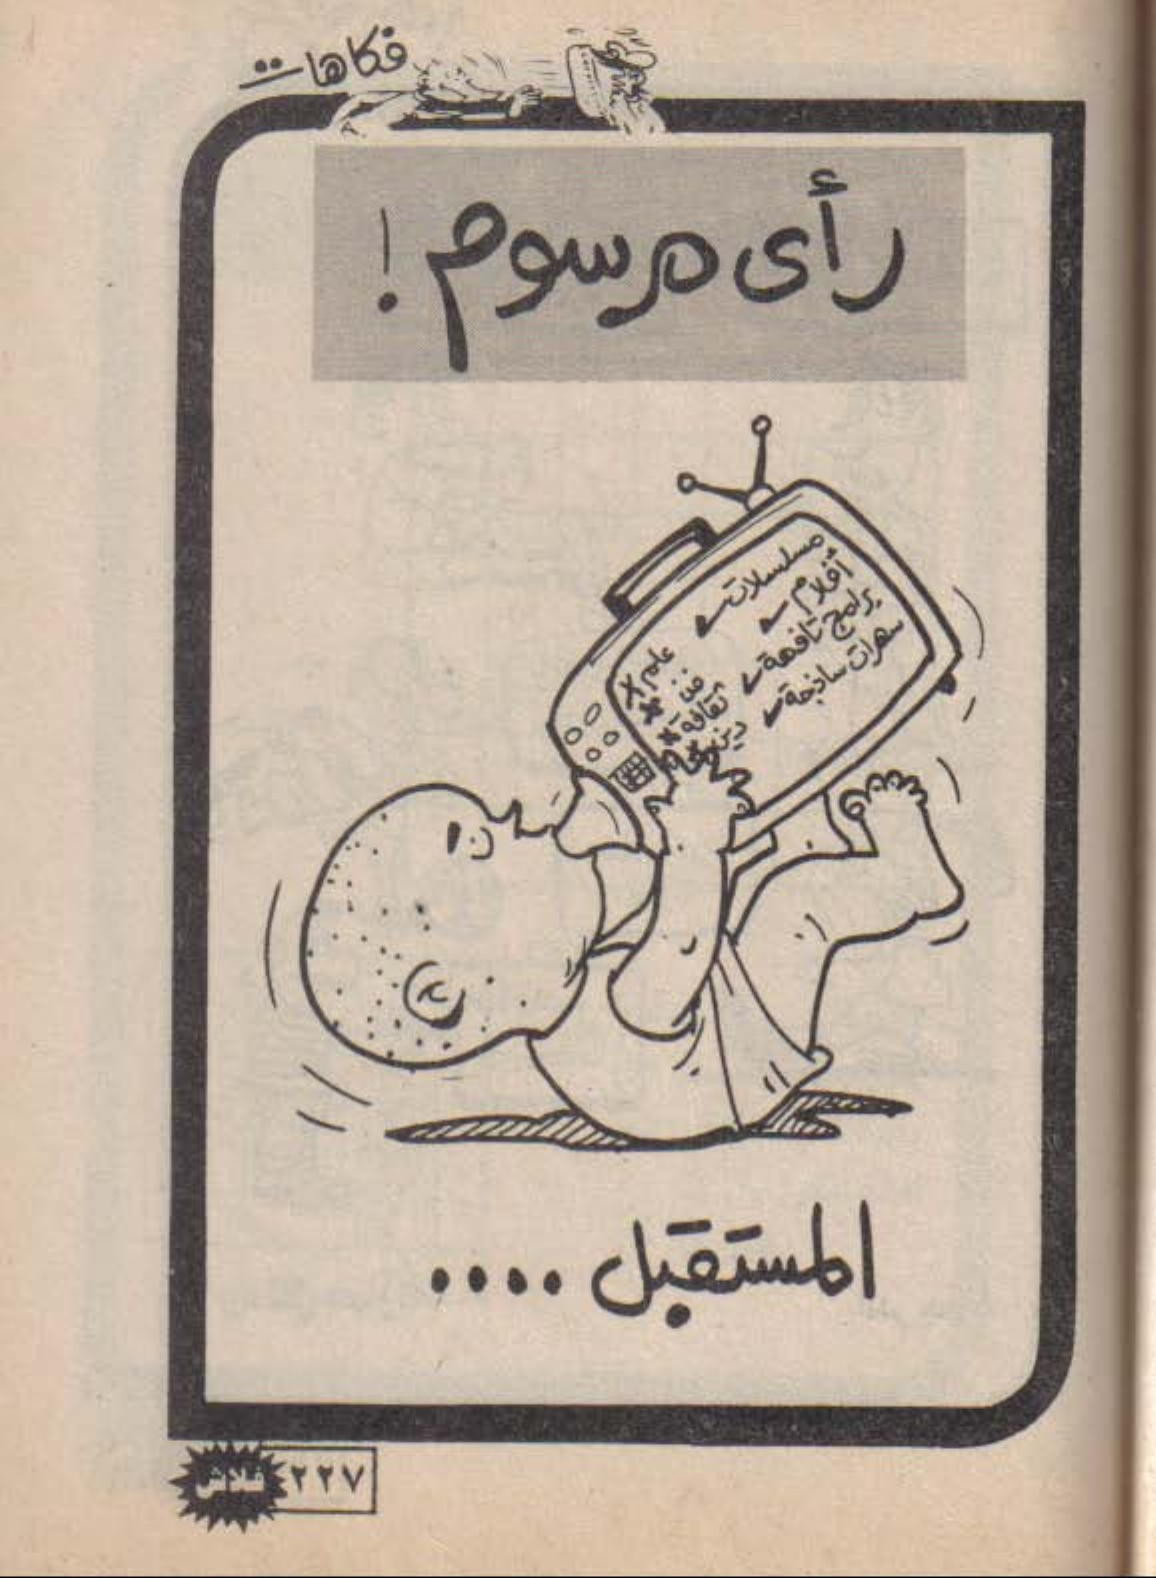 فكاهات
رأى مرسوم!
مسلسلات ✓
أفلام ✓
برامج تافهة ✓
سهرات ساذجة ✓
علم ✗
فن ✗
ثقافة ✗
دين ✗
المستقبل ....
٢٢٧ فلاش